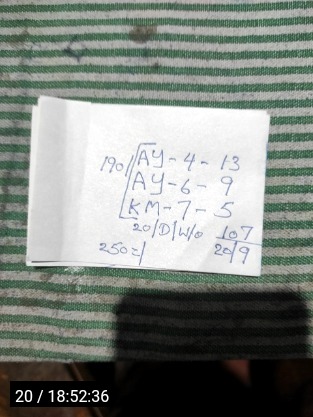 190/ AY - 4 - 13
AY - 6 - 9
KM - 7 - 5
20/D/W/o 107
250=/ 20/9
20 / 18:52:36